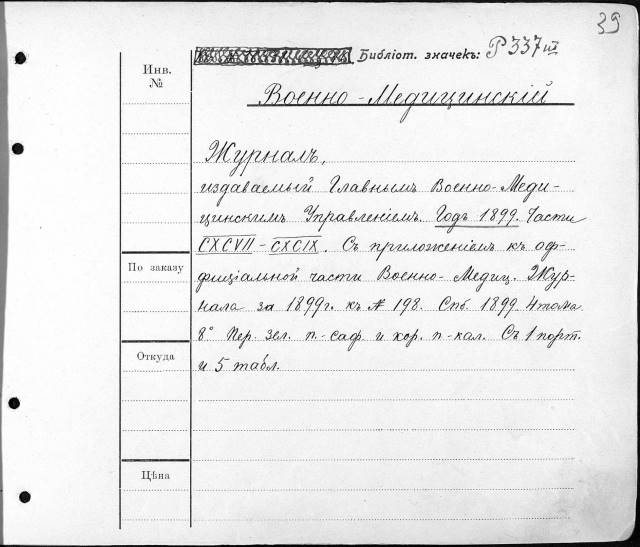 39
Библіот. значекъ: P 337 III
Инв.
№
Военно-Медицинскій
Журналъ,
издаваемый Главнымъ Военно-Меди-
цинскимъ Управленіемъ. Годъ 1899. Части
CXCVII-CXCIX. Съ приложеніемъ къ оф-
фиціальной части Военно-Медиц. Жур-
По заказу
нала за 1899г. къ № 198. Спб. 1899. 4 тома
8° Пер. зел. п.-саф. и кор. п-кал. Съ 1 порт.
Откуда
и 5 табл.
Цѣна